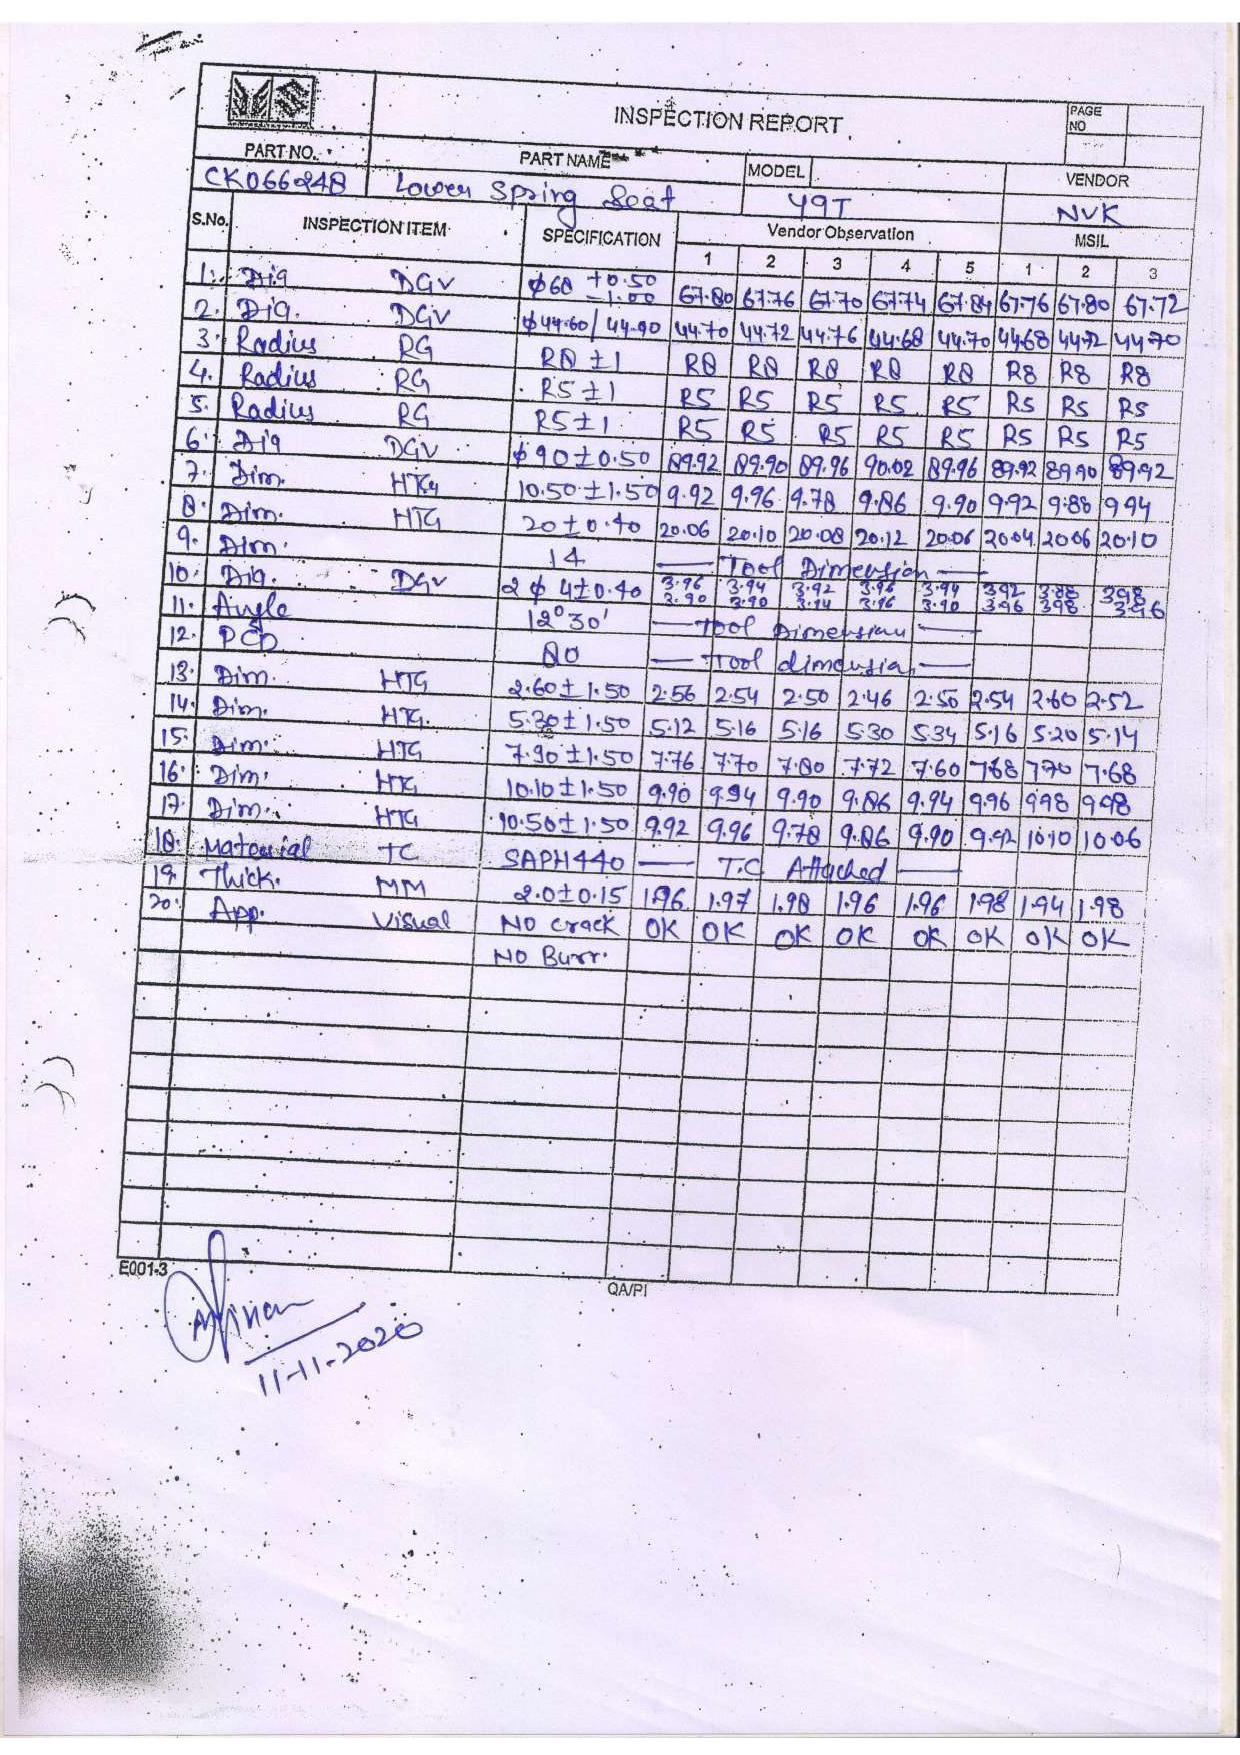 INSPECTION REPORT
PAGE NO
PART NO. PART NAME MODEL VENDOR
CK066248 Lower Spring Seat Y9T NVK
S.No. INSPECTION ITEM SPECIFICATION Vendor Observation MSIL
1 2 3 4 5 1 2 3
1. Dia DGV φ68 +0.50 -1.00 67.80 67.76 67.70 67.74 67.84 67.76 67.80 67.72
2. Dia. DGV φ44.60/44.90 44.70 44.72 44.76 44.68 44.70 44.68 44.72 44.70
3. Radius RG R8 ±1 R8 R8 R8 R8 R8 R8 R8 R8
4. Radius RG R5±1 R5 R5 R5 R5 R5 R5 R5 R5
5. Radius RG R5±1 R5 R5 R5 R5 R5 R5 R5 R5
6. Dia DGV φ90±0.50 89.92 89.90 89.96 90.02 89.96 89.92 89.90 89.92
7. Dim. HTG 10.50±1.50 9.92 9.96 9.78 9.86 9.90 9.92 9.88 9.94
8. Dim. HTG 20±0.40 20.06 20.10 20.08 20.12 20.06 20.04 20.06 20.10
9. Dim. 14 — Tool Dimension —
10. Dia. DGV 2 φ 4±0.40 3.96 3.94 3.92 3.96 3.94 3.92 3.88 3.98
3.90 3.90 3.94 3.96 3.90 3.96 3.98 3.96
11. Angle 12°30' — Tool Dimension —
12. PCD 80 — Tool dimension —
13. Dim. HTG 2.60±1.50 2.56 2.54 2.50 2.46 2.50 2.54 2.60 2.52
14. Dim. HTG. 5.30±1.50 5.12 5.16 5.16 5.30 5.34 5.16 5.20 5.14
15. Dim. HTG 7.90±1.50 7.76 7.70 7.80 7.72 7.60 7.68 7.70 7.68
16. Dim. HTG 10.10±1.50 9.90 9.94 9.90 9.86 9.94 9.96 9.98 9.98
17. Dim. HTG 10.50±1.50 9.92 9.96 9.78 9.86 9.90 9.92 10.10 10.06
18. Material TC SAPH440 — T.C Attached —
19. Thick. MM 2.0±0.15 1.96 1.97 1.98 1.96 1.96 1.98 1.94 1.98
20. App. Visual No crack OK OK OK OK OK OK OK OK
No Burr.
E001-3 QA/PI
11-11-2020